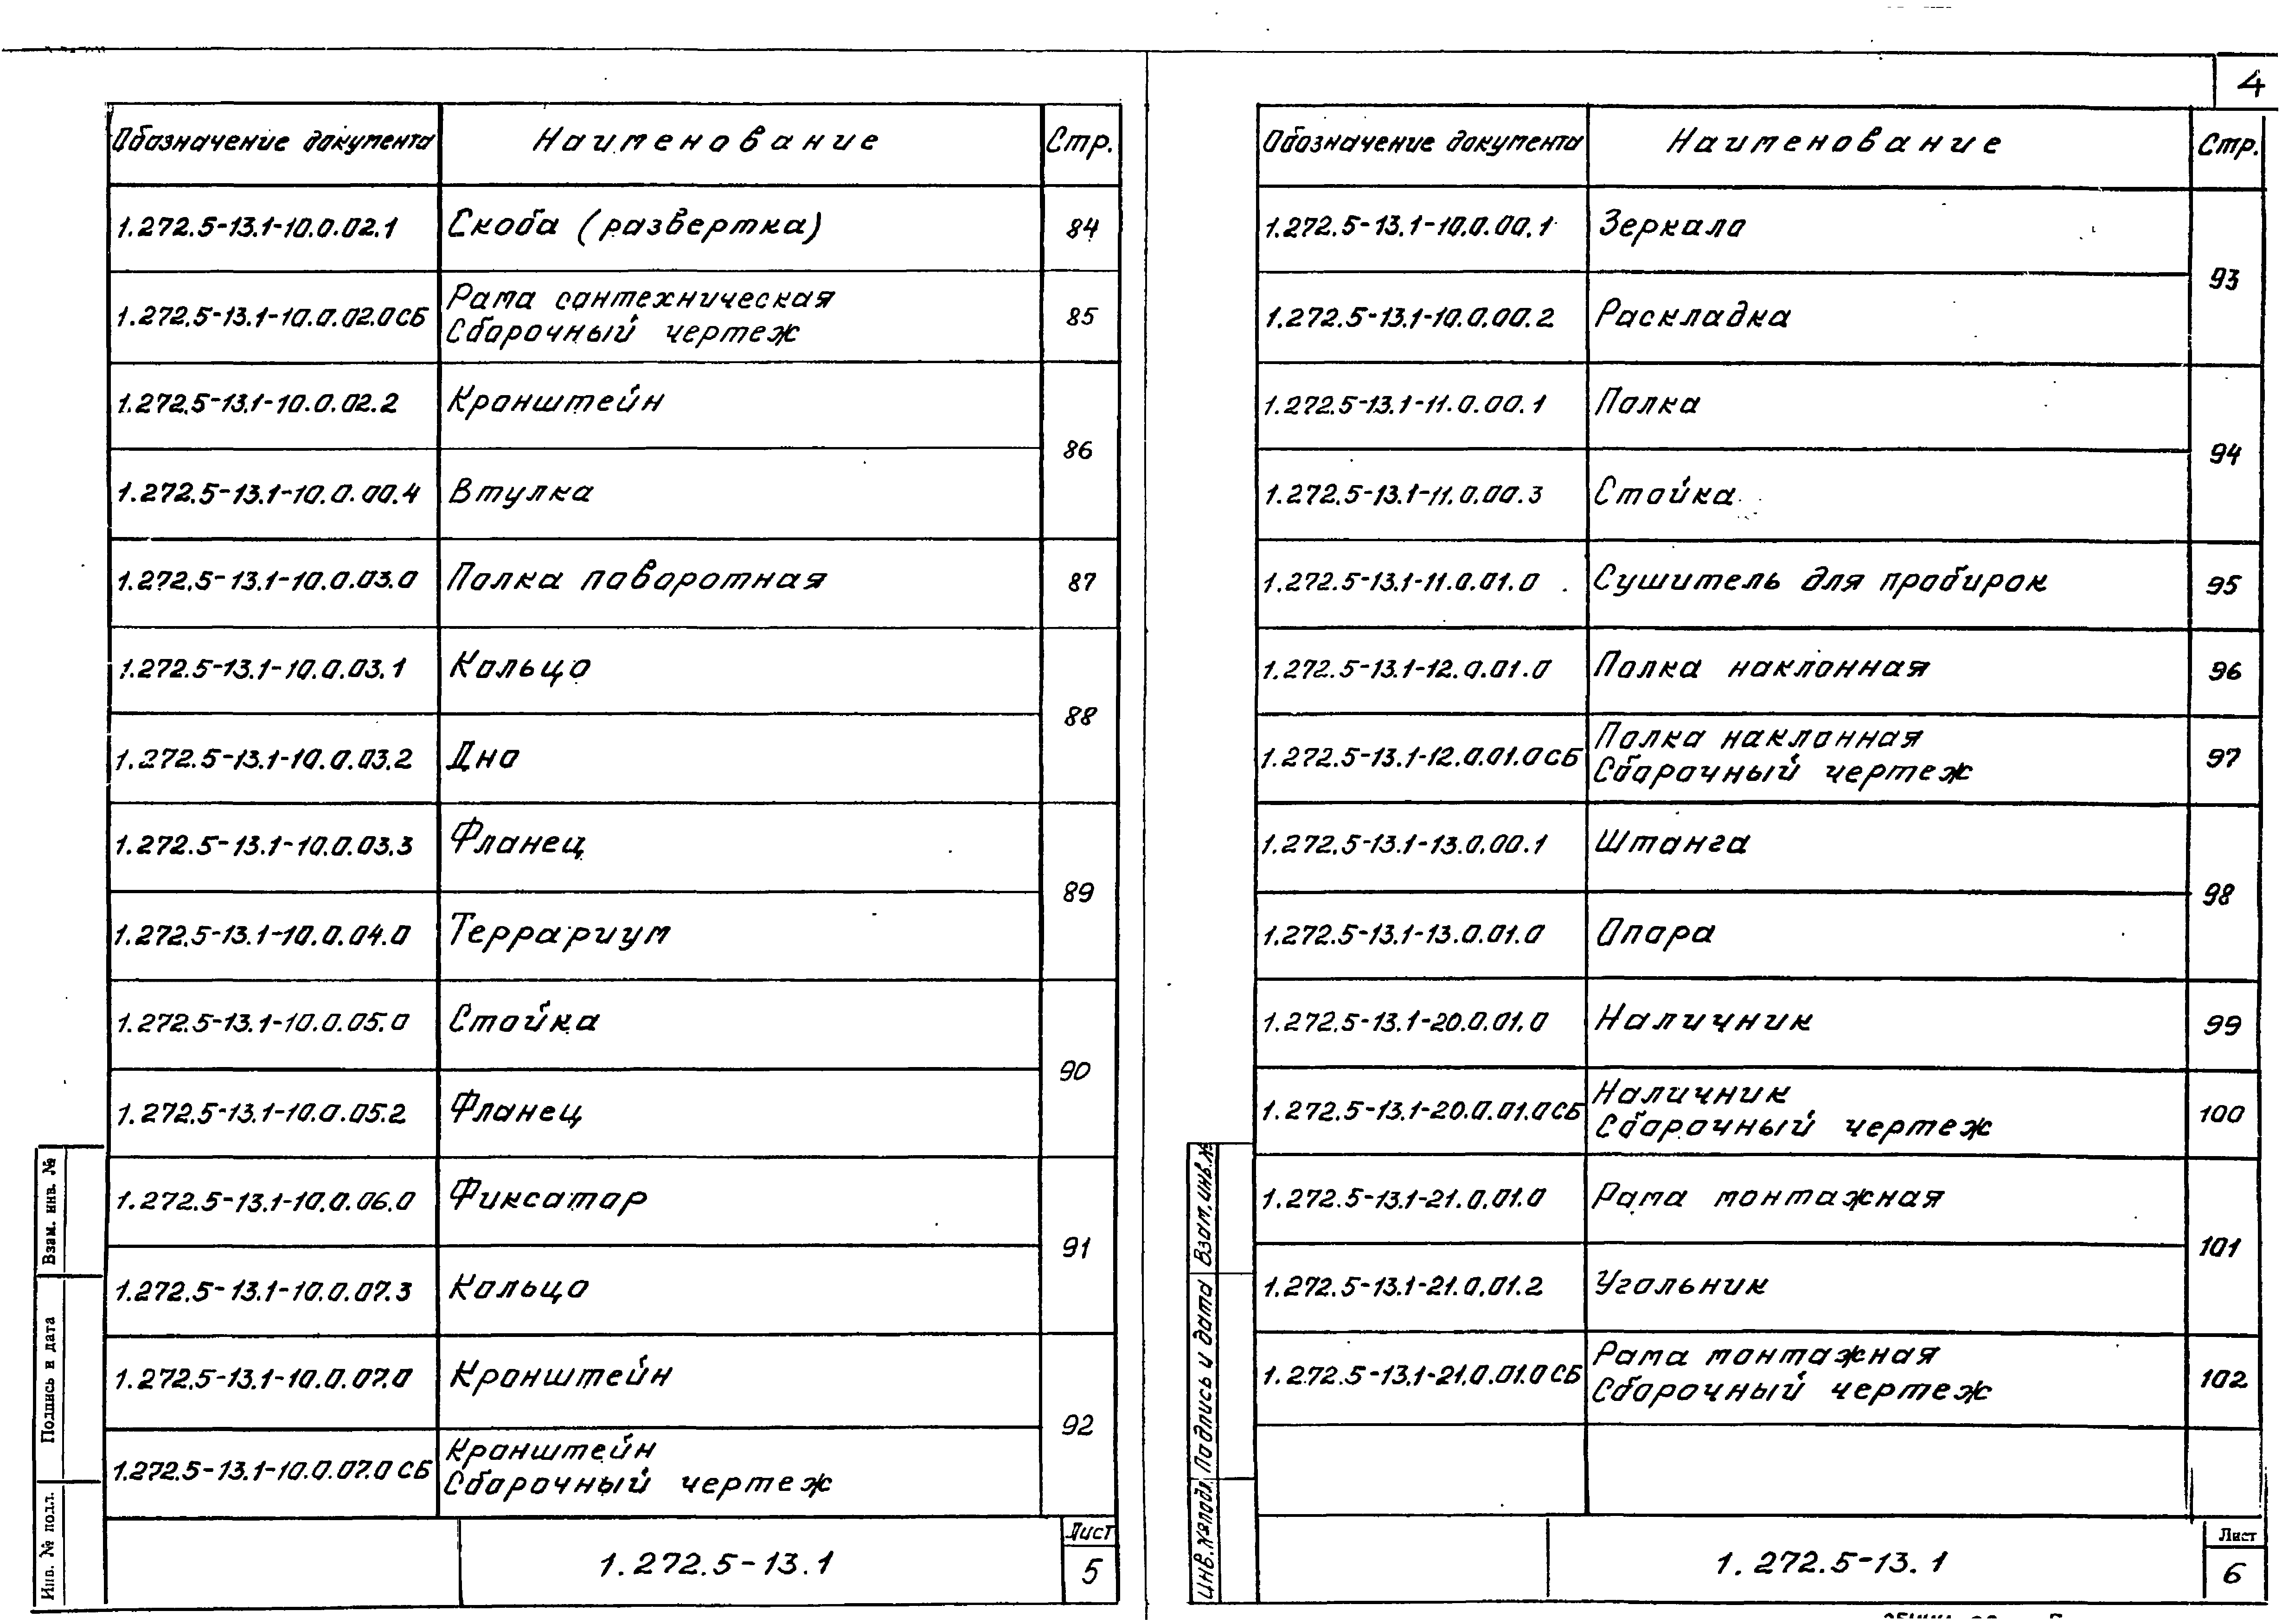 4
Обозначение документа Наименование Стр.
1.272.5-13.1-10.0.02.1 Скоба (развертка) 84
1.272.5-13.1-10.0.02.0СБ Рама сантехническая
Сборочный чертеж 85
1.272.5-13.1-10.0.02.2 Кронштейн
86
1.272.5-13.1-10.0.00.4 Втулка
1.272.5-13.1-10.0.03.0 Полка поворотная 87
1.272.5-13.1-10.0.03.1 Кольцо
88
1.272.5-13.1-10.0.03.2 Дно
1.272.5-13.1-10.0.03.3 Фланец
89
1.272.5-13.1-10.0.04.0 Террариум
1.272.5-13.1-10.0.05.0 Стойка
90
1.272.5-13.1-10.0.05.2 Фланец
1.272.5-13.1-10.0.06.0 Фиксатор
91
1.272.5-13.1-10.0.07.3 Кольцо
1.272.5-13.1-10.0.07.0 Кронштейн
92
1.272.5-13.1-10.0.07.0 СБ Кронштейн
Сборочный чертеж
1.272.5-13.1
Лист
5
Взам. инв. №
Подпись и дата
Инв. № подл.
Обозначение документа Наименование Стр.
1.272.5-13.1-10.0.00.1 Зеркало
93
1.272.5-13.1-10.0.00.2 Раскладка
1.272.5-13.1-11.0.00.1 Полка
94
1.272.5-13.1-11.0.00.3 Стойка
1.272.5-13.1-11.0.01.0 Сушитель для пробирок 95
1.272.5-13.1-12.0.01.0 Полка наклонная 96
1.272.5-13.1-12.0.01.0СБ Полка наклонная
Сборочный чертеж 97
1.272.5-13.1-13.0.00.1 Штанга
98
1.272.5-13.1-13.0.01.0 Опора
1.272.5-13.1-20.0.01.0 Наличник 99
1.272.5-13.1-20.0.01.0СБ Наличник
Сборочный чертеж 100
1.272.5-13.1-21.0.01.0 Рама монтажная
101
1.272.5-13.1-21.0.01.2 Угольник
1.272.5-13.1-21.0.01.0СБ Рама монтажная
Сборочный чертеж 102
1.272.5-13.1
Лист
6
Взам. инв. №
Подпись и дата
Инв. № подл.